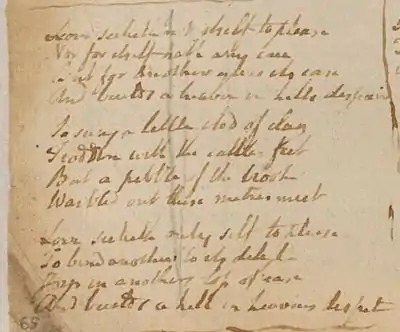 Love seeketh not itself to please
Nor for itself hath any care
But for another gives its ease
And builds a heaven in hells despair
So sung a little clod of clay
Trodden with the cattles feet
But a pebble of the brook
Warbled out these metres meet
Love seeketh only self to please
To bind another to its delight
Joys in anothers loss of ease
And builds a hell in heavens despite